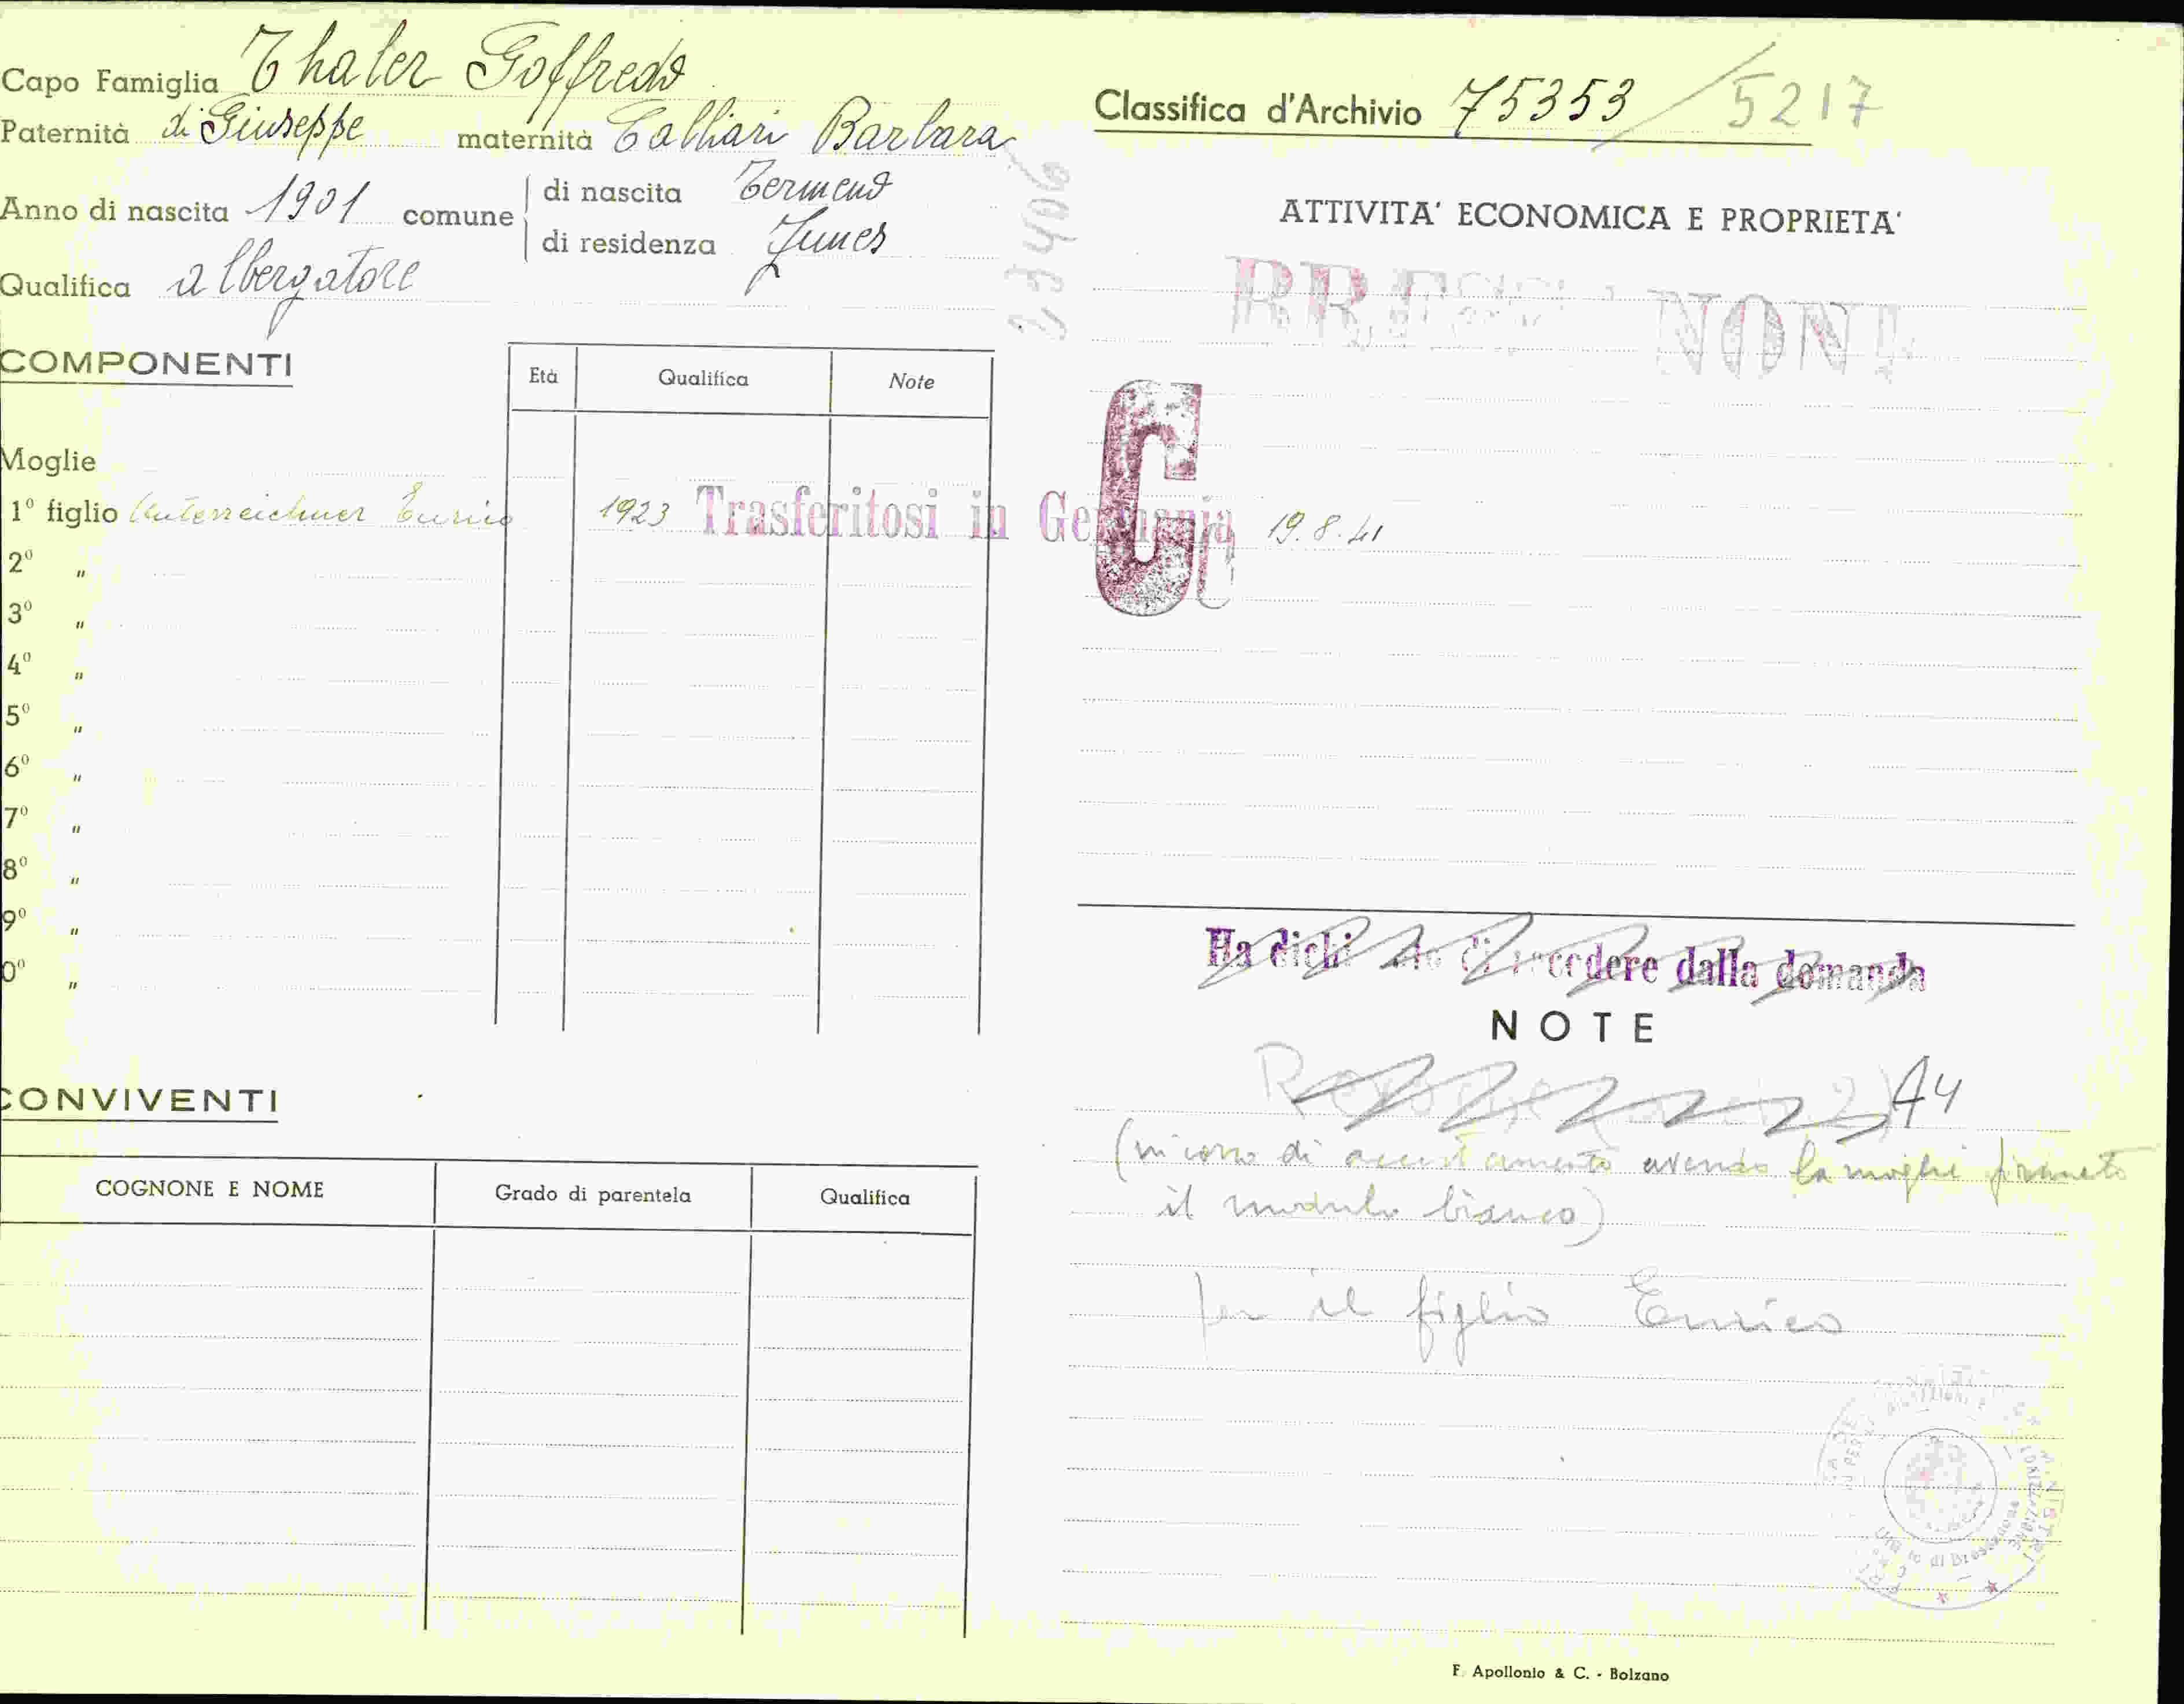 Capo Famiglia Thaler Goffredo
Paternità di Giuseppe maternità Calliari Barbara
Anno di nascita 1901 comune di nascita Termeno
di residenza Funes
Qualifica albergatore
COMPONENTI
Età Qualifica Note
Moglie
1º figlio Unterreichner Enrico 1923 Trasferitosi in Germania 19.8.41
2º "
3º "
4º "
5º "
6º "
7º "
8º "
9º "
0º "
CONVIVENTI
COGNONE E NOME Grado di parentela Qualifica
Classifica d'Archivio 75353/5217
ATTIVITA' ECONOMICA E PROPRIETA'
BRESSANONE
C
Ha dichiarato di recedere dalla domanda
NOTE
A4
(in corso di accertamento avendo la moglie firmato
il modulo bianco)
per il figlio Enrico
F. Apollonio & C. - Bolzano